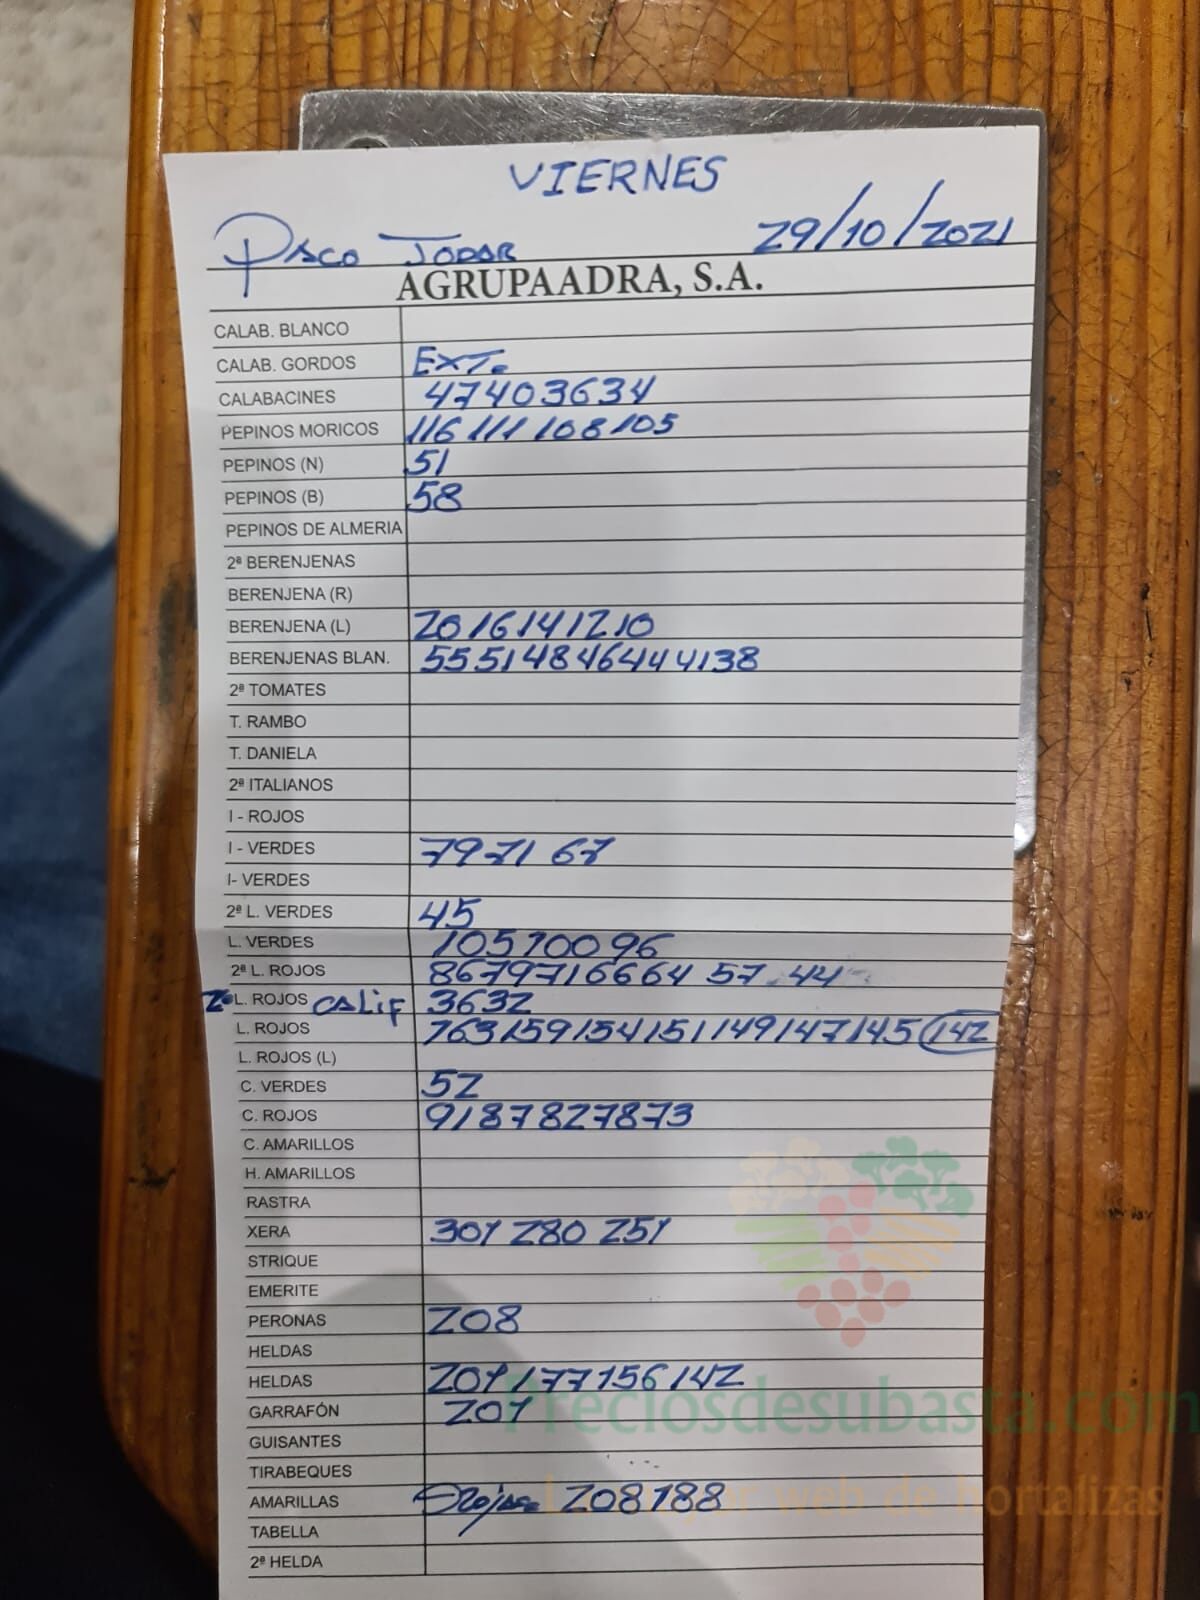 VIERNES
Paco Jodar 29/10/2021
AGRUPAADRA, S.A.
CALAB. BLANCO
CALAB. GORDOS EXT.
CALABACINES 47403634
PEPINOS MORICOS 116 111 108 105
PEPINOS (N) 51
PEPINOS (B) 58
PEPINOS DE ALMERIA
2ª BERENJENAS
BERENJENA (R)
BERENJENA (L) 2016141210
BERENJENAS BLAN. 55514846444138
2ª TOMATES
T. RAMBO
T. DANIELA
2ª ITALIANOS
I - ROJOS
I - VERDES 7971 67
I- VERDES
2ª L. VERDES 45
L. VERDES 10510096
2ª L. ROJOS 8679716664 57 44
2ª L. ROJOS CALIF 3632
L. ROJOS 163159154151149147145 142
L. ROJOS (L)
C. VERDES 52
C. ROJOS 9187827873
C. AMARILLOS
H. AMARILLOS
RASTRA
XERA 301 280 251
STRIQUE
EMERITE
PERONAS 208
HELDAS
HELDAS 201177156142
GARRAFÓN 201
GUISANTES
TIRABEQUES
AMARILLAS 208188
TABELLA
2ª HELDA
Preciosdesubasta.com
La mejor web de hortalizas